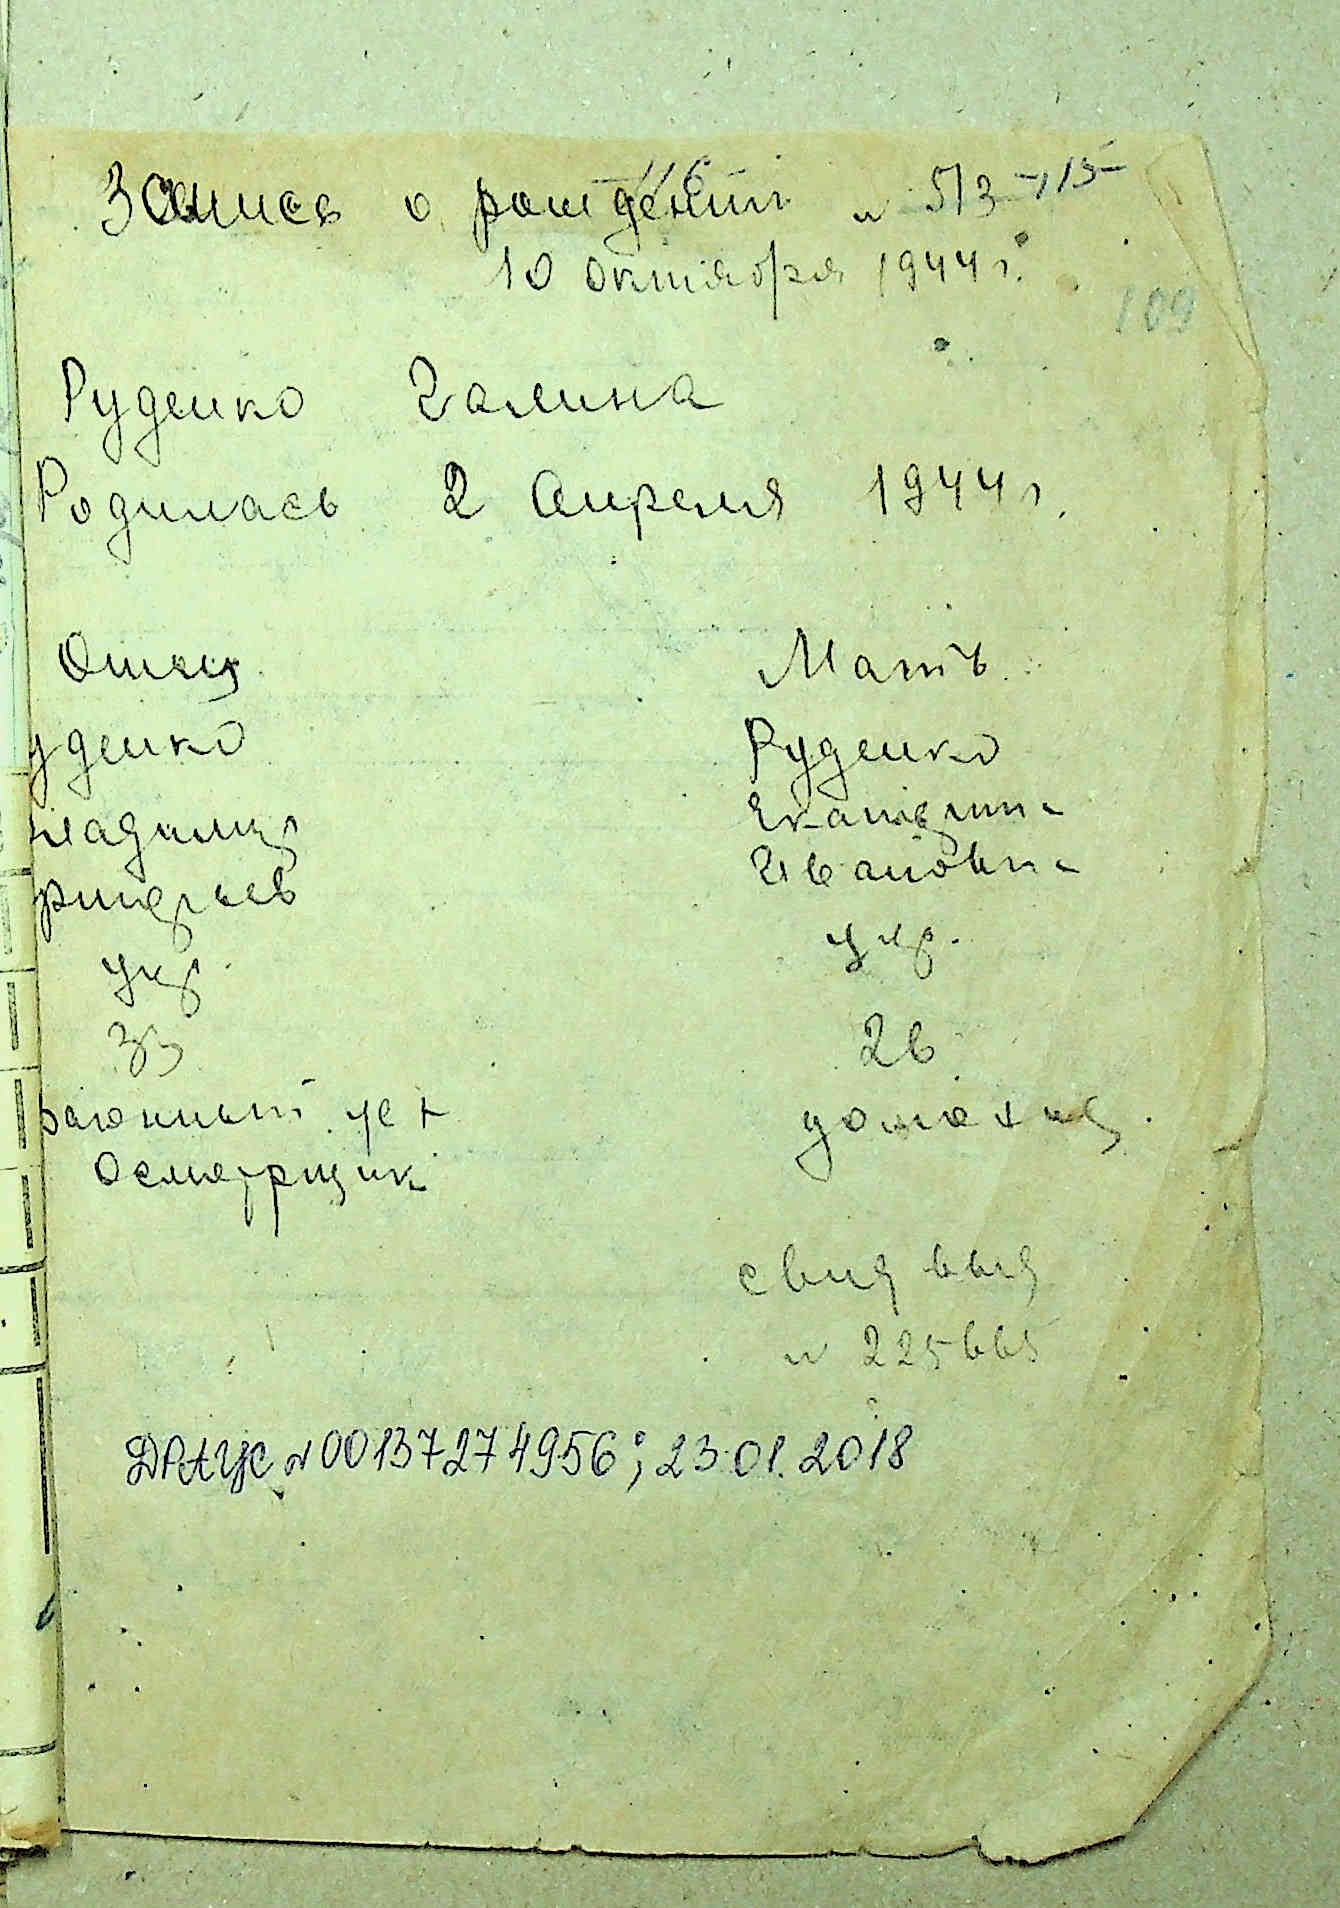 Запись о рождении № 513 115
10 октября 1944 г.
109
Руденко Галина
Родилась 2 апреля 1944 г.
Отец Мать
уденко Руденко
ладимир Екатерина
Ивановна
укр. укр.
33 26
домохоз.
Осмотрщик
свид выд
№ 225665
ДРАЦС №00137274956; 23.01.2018